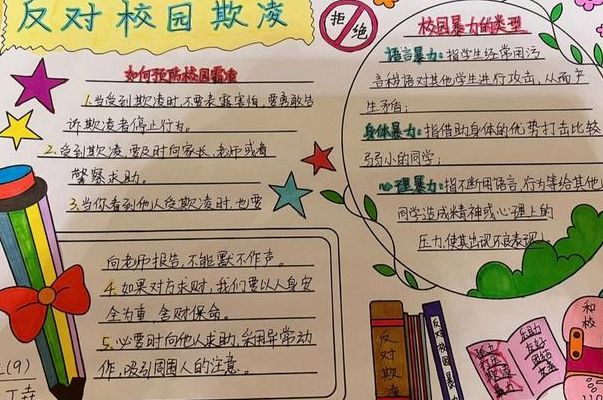 反对校园欺凌
拒绝
校园暴力的类型
语言暴力:指学生经常用污
言秽语对其他学生进行攻击,从而产
生矛盾;
身体暴力:指借助身体的优势打击比较
弱小的同学;
心理暴力:指不断用语言,行为等给其他
同学造成精神或心理上的
压力,使其出现不良表现;
如何预防校园霸凌
1.当受到欺凌时,不要表露害怕,要勇敢告
诉欺凌者停止行为。
2.受到欺凌,要及时向家长,老师或者
警察求助。
3.当你看到他人受欺凌时,也要
向老师报告,不能默不作声。
4.如果对方求财,我们要以人身安
全为重,舍财保命。
5.必要时向他人求助,采用异常动
作,吸引周围人的注意。
(9)
反对欺凌
反对校园暴力
和校
110